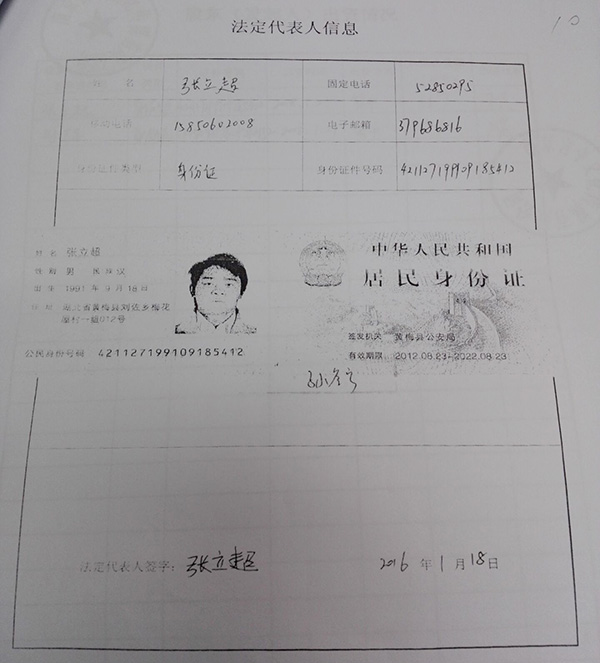 10
法定代表人信息
姓 名 张立超 固定电话 52850295
移动电话 15850602008 电子邮箱 379686816
身份证件类型 身份证 身份证件号码 421127199109185412
姓名 张立超
性别 男 民族 汉
出生 1991年9月18日
住址 湖北省黄梅县刘佐乡梅花
村一组012号
公民身份号码 421127199109185412
中华人民共和国
居民身份证
签发机关 黄梅县公安局
有效期限 2012.08.23-2022.08.23
法定代表人签字: 张立超 2016 年 1 月 18 日